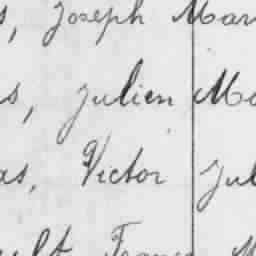 s, Joseph Mar
s, Julien Ma
as, Victor Jul
ult Franç